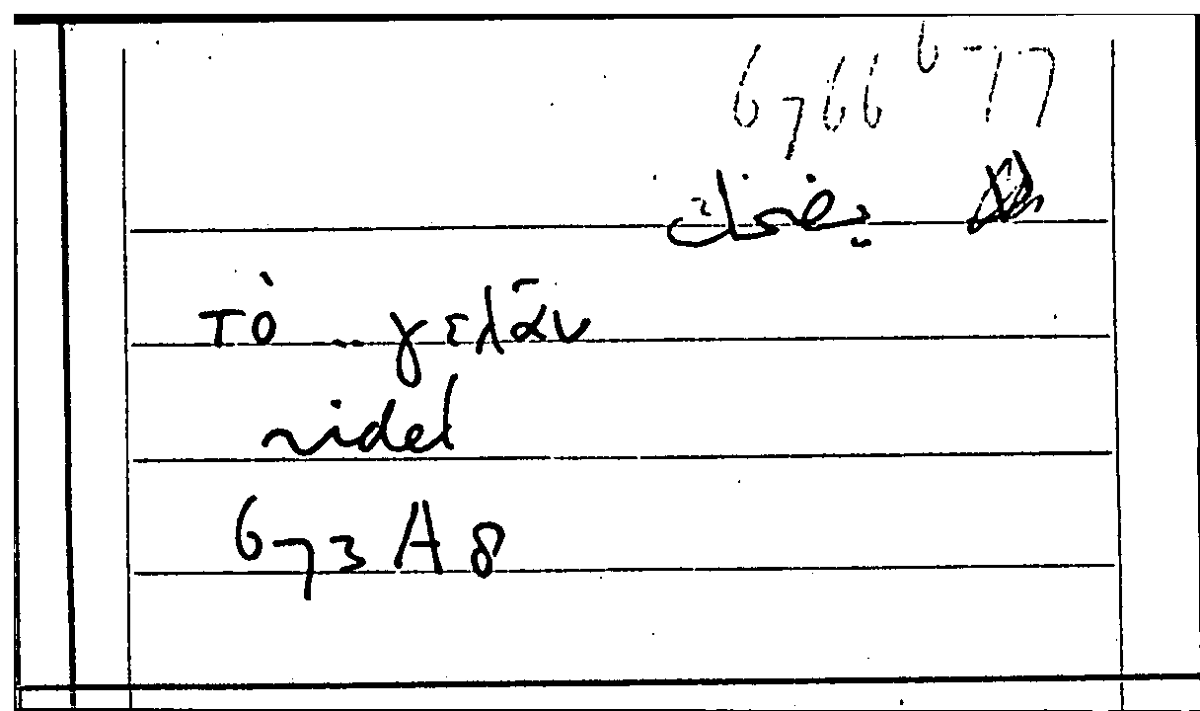 6766 677
يضحك
τὸ .. γελᾶν
ridet
673 A 8